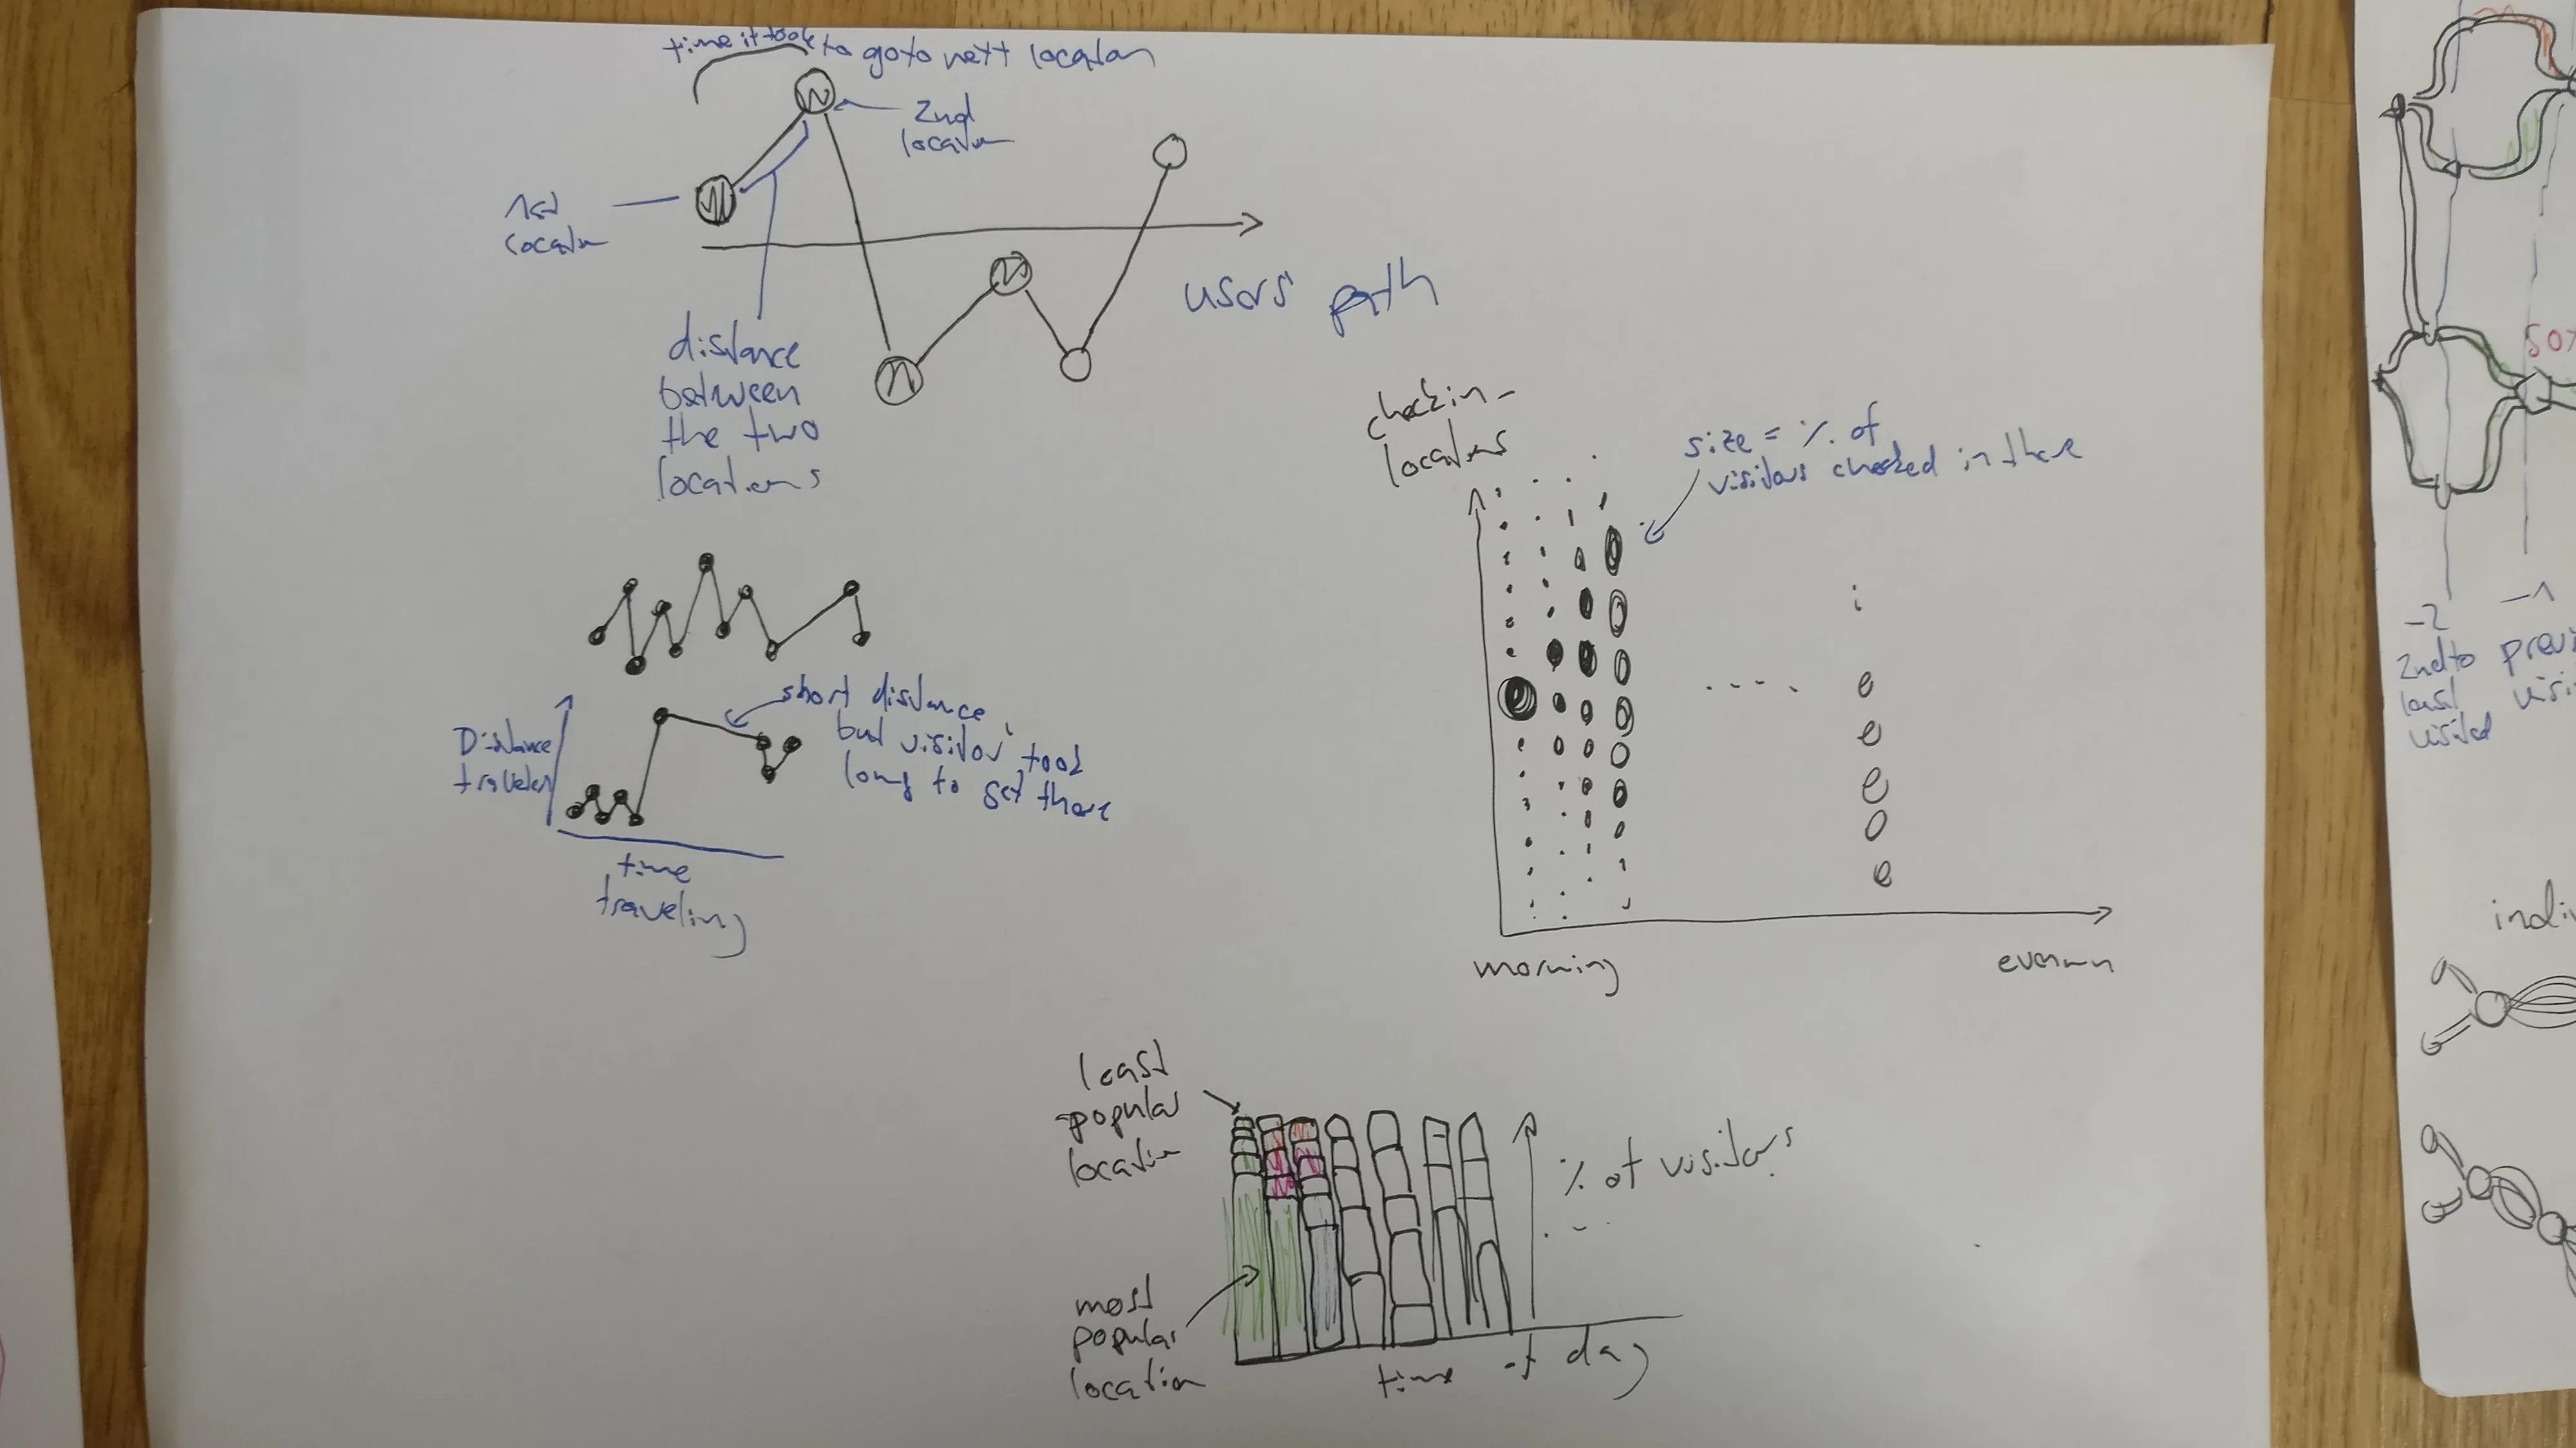 time it took to go to next location
2nd
location
1st
location
users' path
distance
between
the two
locations
checkin-
locations
size = % of
visitors checked in there
short distance
but visitor took
long to get there
Distance
traveled
time
traveling
morning
evening
least
popular
location
% of visitors
most
popular
location
time of day
50%
-2
-1
2nd to
last
visited